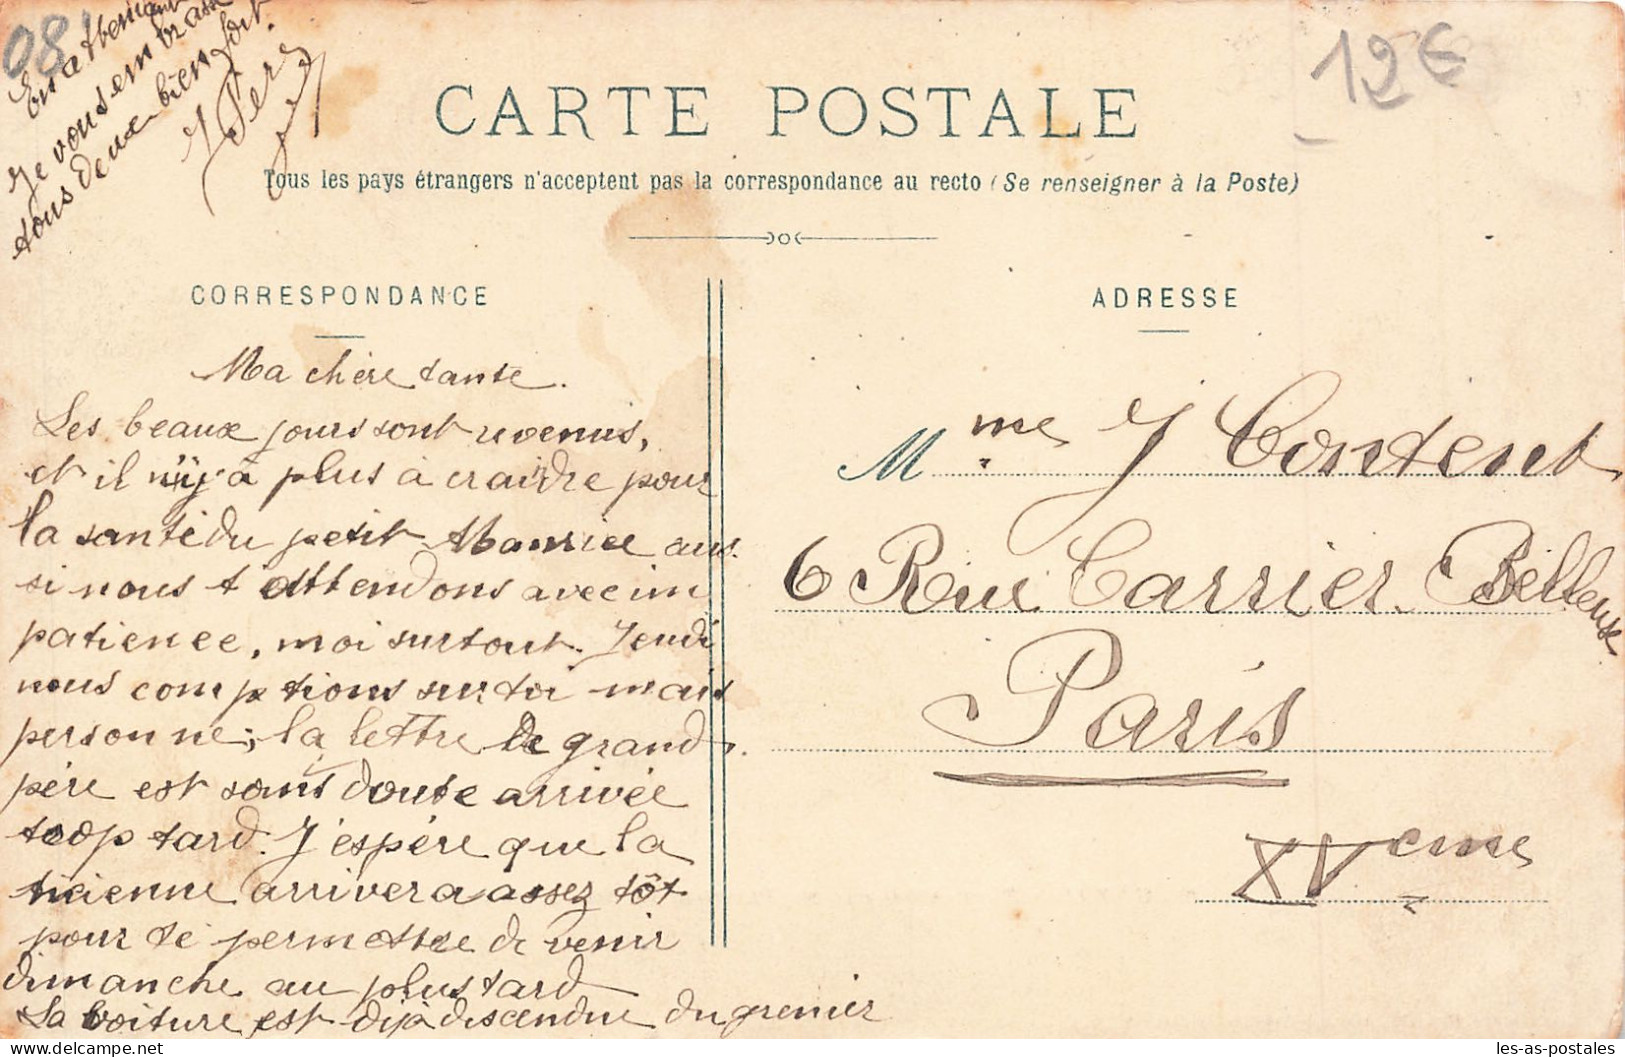 08
12€
CARTE POSTALE
Tous les pays étrangers n'acceptent pas la correspondance au recto (Se renseigner à la Poste)
CORRESPONDANCE
Ma chère tante.
Les beaux jours sont revenus,
et il n'y à plus à craidre pour
la santé du petit Maurice aus.
si nous t'attendons avec im
patience, moi surtout. Jeudi
nous comptions sur toi mais
personne; la lettre de grand.
père est sans doute arrivée
trop tard. J'espère que la
mienne arrivera assez tôt
pour te permettre de venir
dimanche au plus tard
La voiture est déjà descendue du grenier
En attendant
Je vous embrasse
tous deux bien fort.
ADRESSE
Mme J Content
6 Rue Carrier. Belleuse
Paris
XVeme
les-as-postales